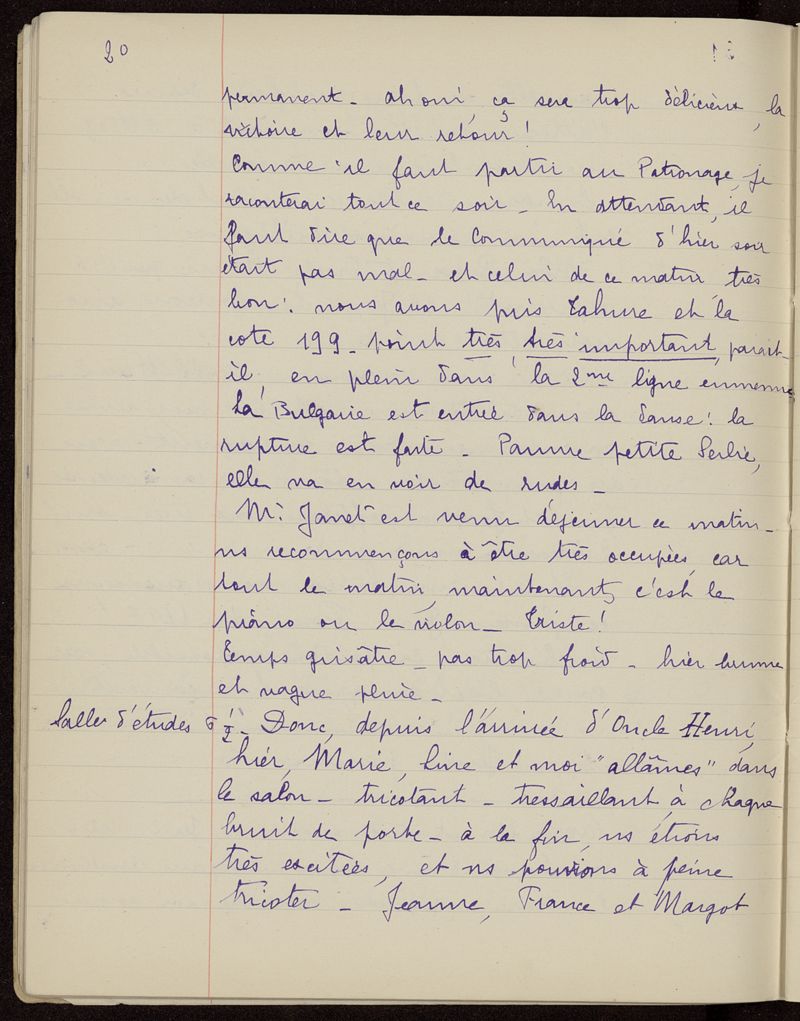 20
permanent - ah oui, ça sera trop délicieux, la
victoire et leur retour !
Comme il faut partir au Patronage, je
raconterai tout ce soir - En attendant, il
faut dire que le Communiqué d'hier soir
était pas mal - et celui de ce matin très
bon : nous avons pris Tahure et la
cote 199 - point très, très important, parait-
il, en plein dans la 2me ligne ennemie
La Bulgarie est entrée dans la danse : la
rupture est faite - Pauvre petite Serbie,
elle va en voir de rudes -
Mr Janet est venu déjeuner ce matin -
ns recommençons à être très occupées, car
tout le matin, maintenant, c'est le
piano ou le violon - Triste !
Temps grisâtre - pas trop froid - hier brume
et vague pluie -
Salle d'études 6 1/2 - Donc, depuis l'arrivée d'Oncle Henri,
hier, Marie, Line et moi "allâmes" dans
le salon - tricotant - tressaillant à chaque
bruit de porte - à la fin, ns étions
très excitées, et ns pouvions à peine
tricoter - Jeanne, France et Margot